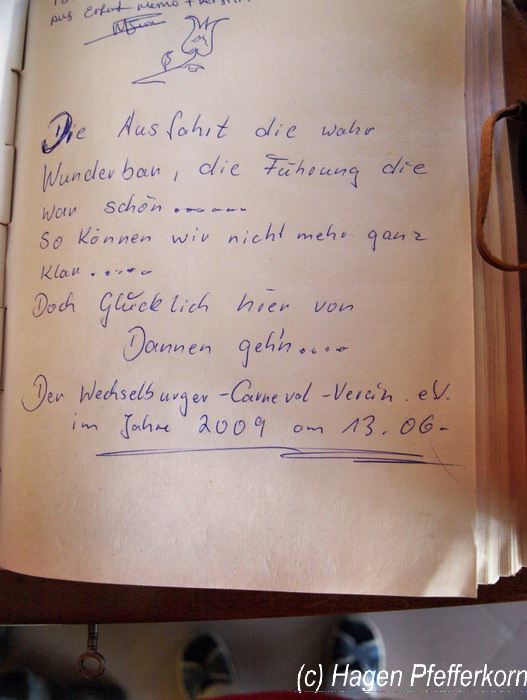 aus Erfurt
Die Ausfahrt die wahr
Wunderbar, die Führung die
war schön......
So können wir nicht mehr ganz
klar.....
Doch Glücklich hier von
Dannen geh'n....
Der Wechselburger-Carneval-Verein.eV.
im Jahre 2009 am 13.06-
(c) Hagen Pfefferkorn